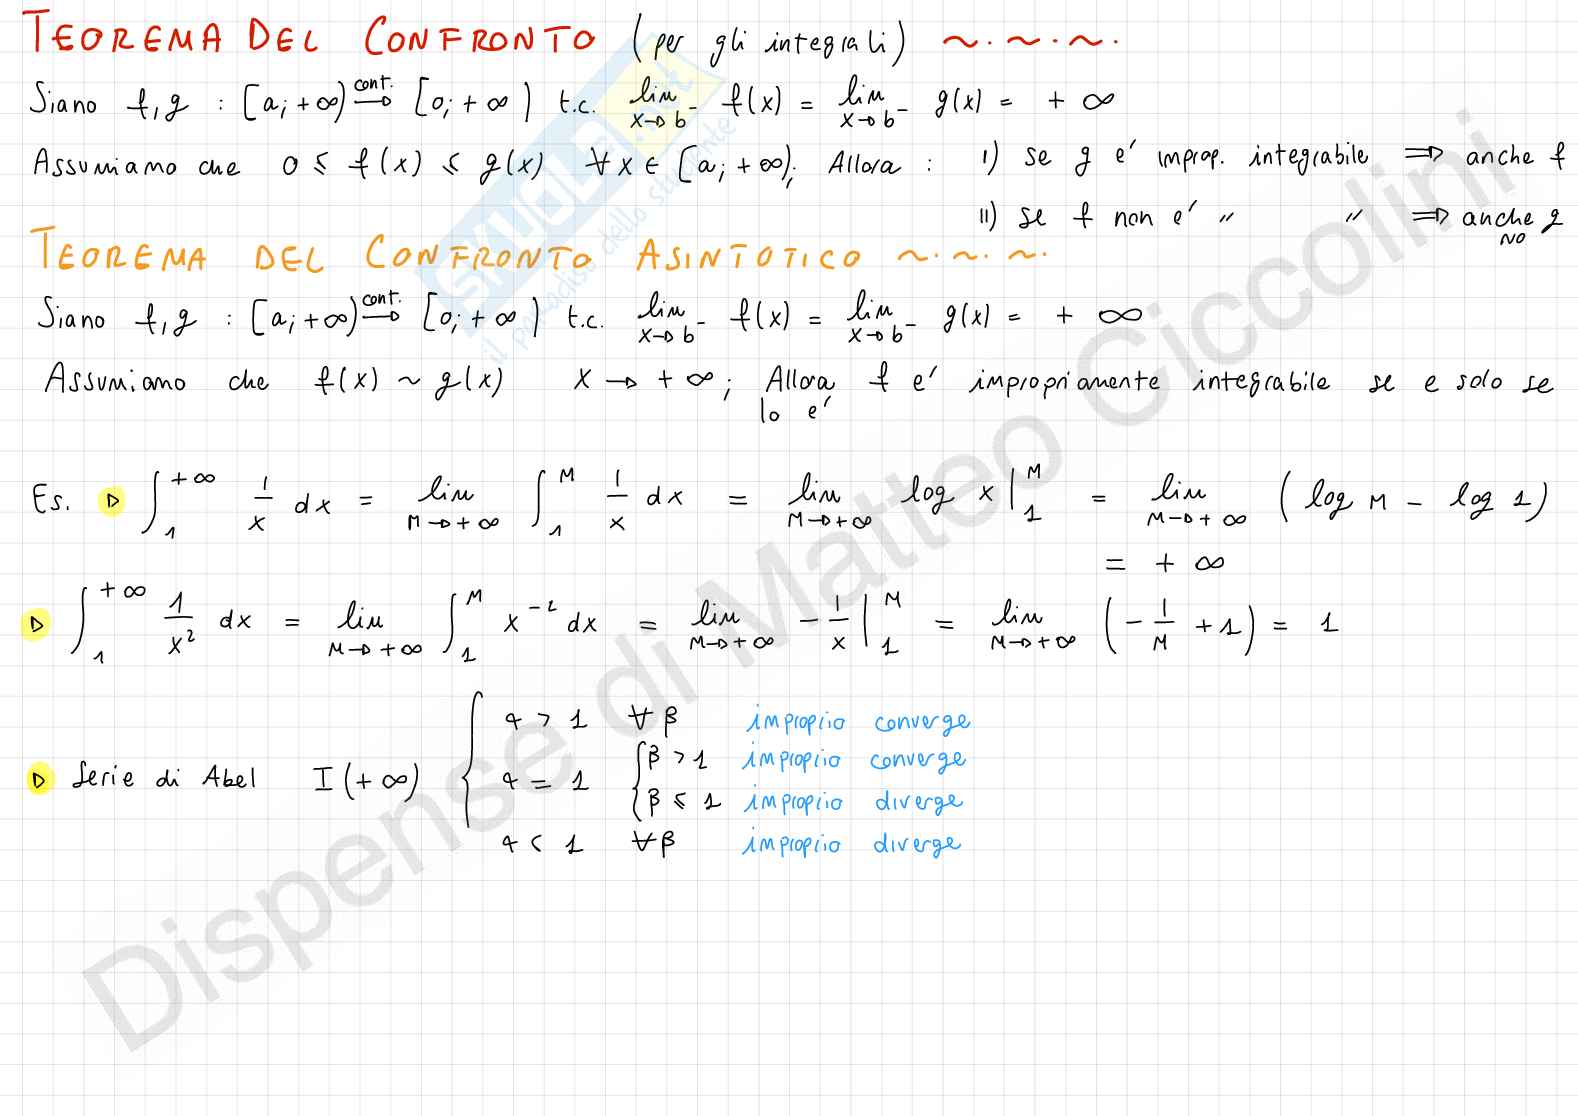 TEOREMA DEL CONFRONTO (per gli integrali) ~·~·~·
Siano f,g : [a;+∞) cont.→ [0;+∞) t.c. lim x→b⁻ f(x) = lim x→b⁻ g(x) = +∞
Assumiamo che 0 ≤ f(x) ≤ g(x) ∀x ∈ [a;+∞); Allora : I) se g e' improp. integrabile ⇒ anche f
II) se f non e' " " ⇒ anche g NO
TEOREMA DEL CONFRONTO ASINTOTICO ~·~·~·
Siano f,g : [a;+∞) cont.→ [0;+∞) t.c. lim x→b⁻ f(x) = lim x→b⁻ g(x) = +∞
Assumiamo che f(x) ~ g(x) x→+∞; Allora f e' impropriamente integrabile se e solo se
lo e'
Es. ▷ ∫₁^{+∞} 1/x dx = lim M→+∞ ∫₁^M 1/x dx = lim M→+∞ log x |₁^M = lim M→+∞ (log M - log 1)
= +∞
▷ ∫₁^{+∞} 1/x² dx = lim M→+∞ ∫₁^M x⁻² dx = lim M→+∞ -1/x |₁^M = lim M→+∞ (-1/M + 1) = 1
α > 1 ∀β improprio converge
β > 1 improprio converge
▷ Serie di Abel I(+∞) α = 1
β ≤ 1 improprio diverge
α < 1 ∀β improprio diverge
SKUOLA.net
il paradiso dello studente
Dispense di Matteo Ciccolini